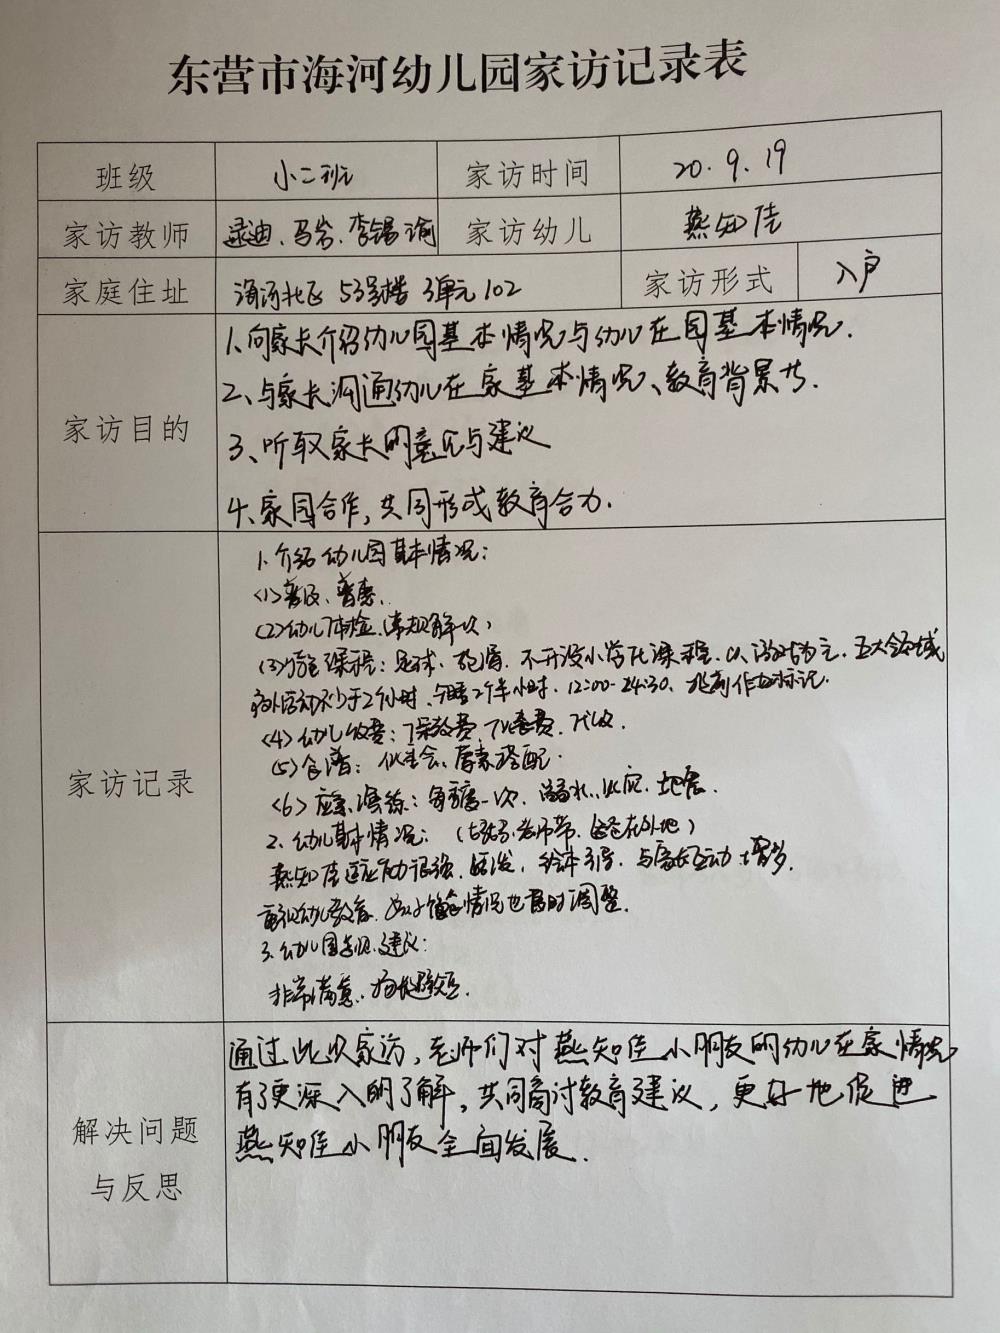 东营市海河幼儿园家访记录表
班级 小二班 家访时间 20.9.19
家访教师 迪、马岩、李锡瑜 家访幼儿 燕知佳
家庭住址 海河北区 53号楼 3单元102 家访形式 入户
家访目的
1、向家长介绍幼儿园基本情况与幼儿在园基本情况.
2、与家长沟通幼儿在家基本情况、教育背景等.
3、听取家长的意见与建议
4、家园合作,共同形成教育合力.
家访记录
1、介绍幼儿园基本情况:
(1)普及、普惠、
(2)幼儿体检、
(3)特色课程:足球、 不开设小学化课程、以游戏为主、五大领域
户外活动不少于2个小时、午睡2个半小时、12:00-24:30、
(4)幼儿收费:保教费、
(5)食谱: 荤素搭配.
(6)应急演练: 一次、 火灾、地震.
2、幼儿基本情况:( 爸爸在外地)
燕知佳适应能力很强、活泼、绘本引导、与家长互动
重视幼儿教育、 情况也及时调整.
3、幼儿园 建议:
非常满意、
解决问题
与反思
通过此次家访,老师们对燕知佳小朋友的幼儿在家情况
有了更深入的了解,共同商讨教育建议,更好地促进
燕知佳小朋友全面发展.